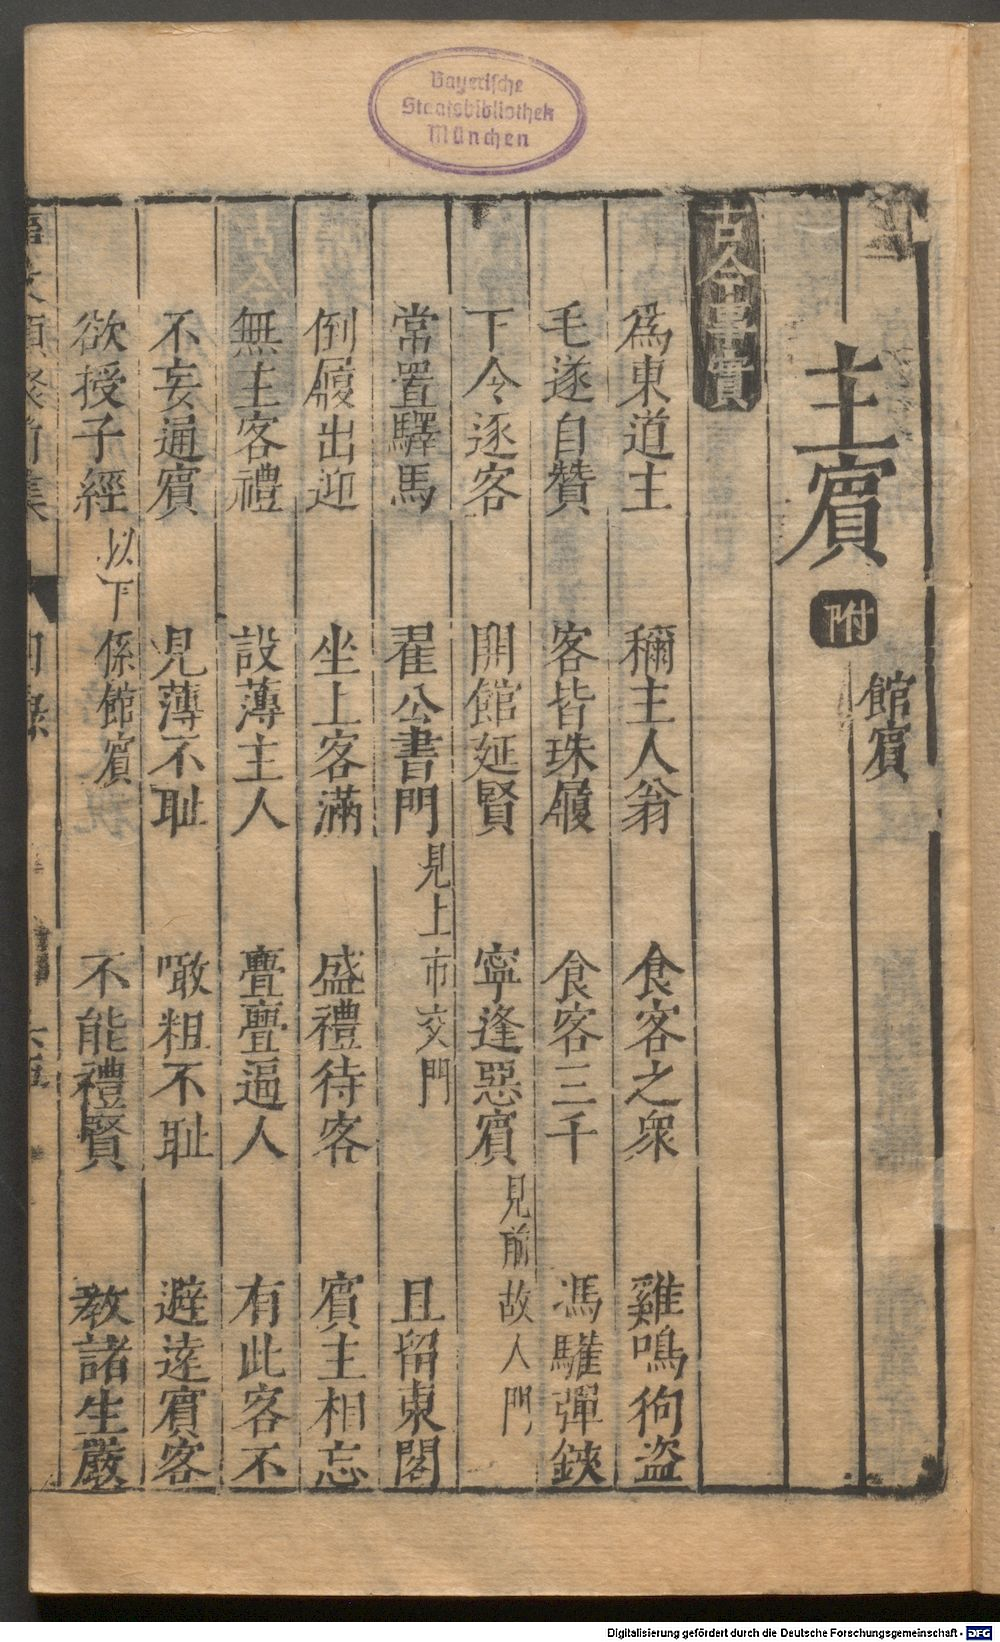 Bayerische
Staatsbibliothek
München
主賓 附 館賓
古今事實
為東道主 稱主人翁 食客之衆 雞鳴狗盜
毛遂自贊 客皆珠履 食客三千 馮驩彈鋏
下令逐客 開館延賢 寧逢惡賓 見前故人門
常置驛馬 翟公書門 見上市交門 且留東閣
倒屣出迎 坐上客滿 盛禮待客 賓主相忘
無主客禮 設薄主人 亹亹逼人 有此客不
不妄通賓 見薄不耻 噉粗不耻 避遠賓客
欲授子經 以下係館賓 不能禮賢 教諸生嚴
Digitalisierung gefördert durch die Deutsche Forschungsgemeinschaft - DFG